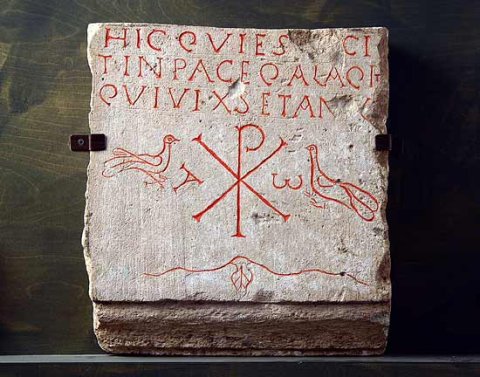 HICQVIES CI
TINPACE
QVIVIXSETAN
A ☧ ω